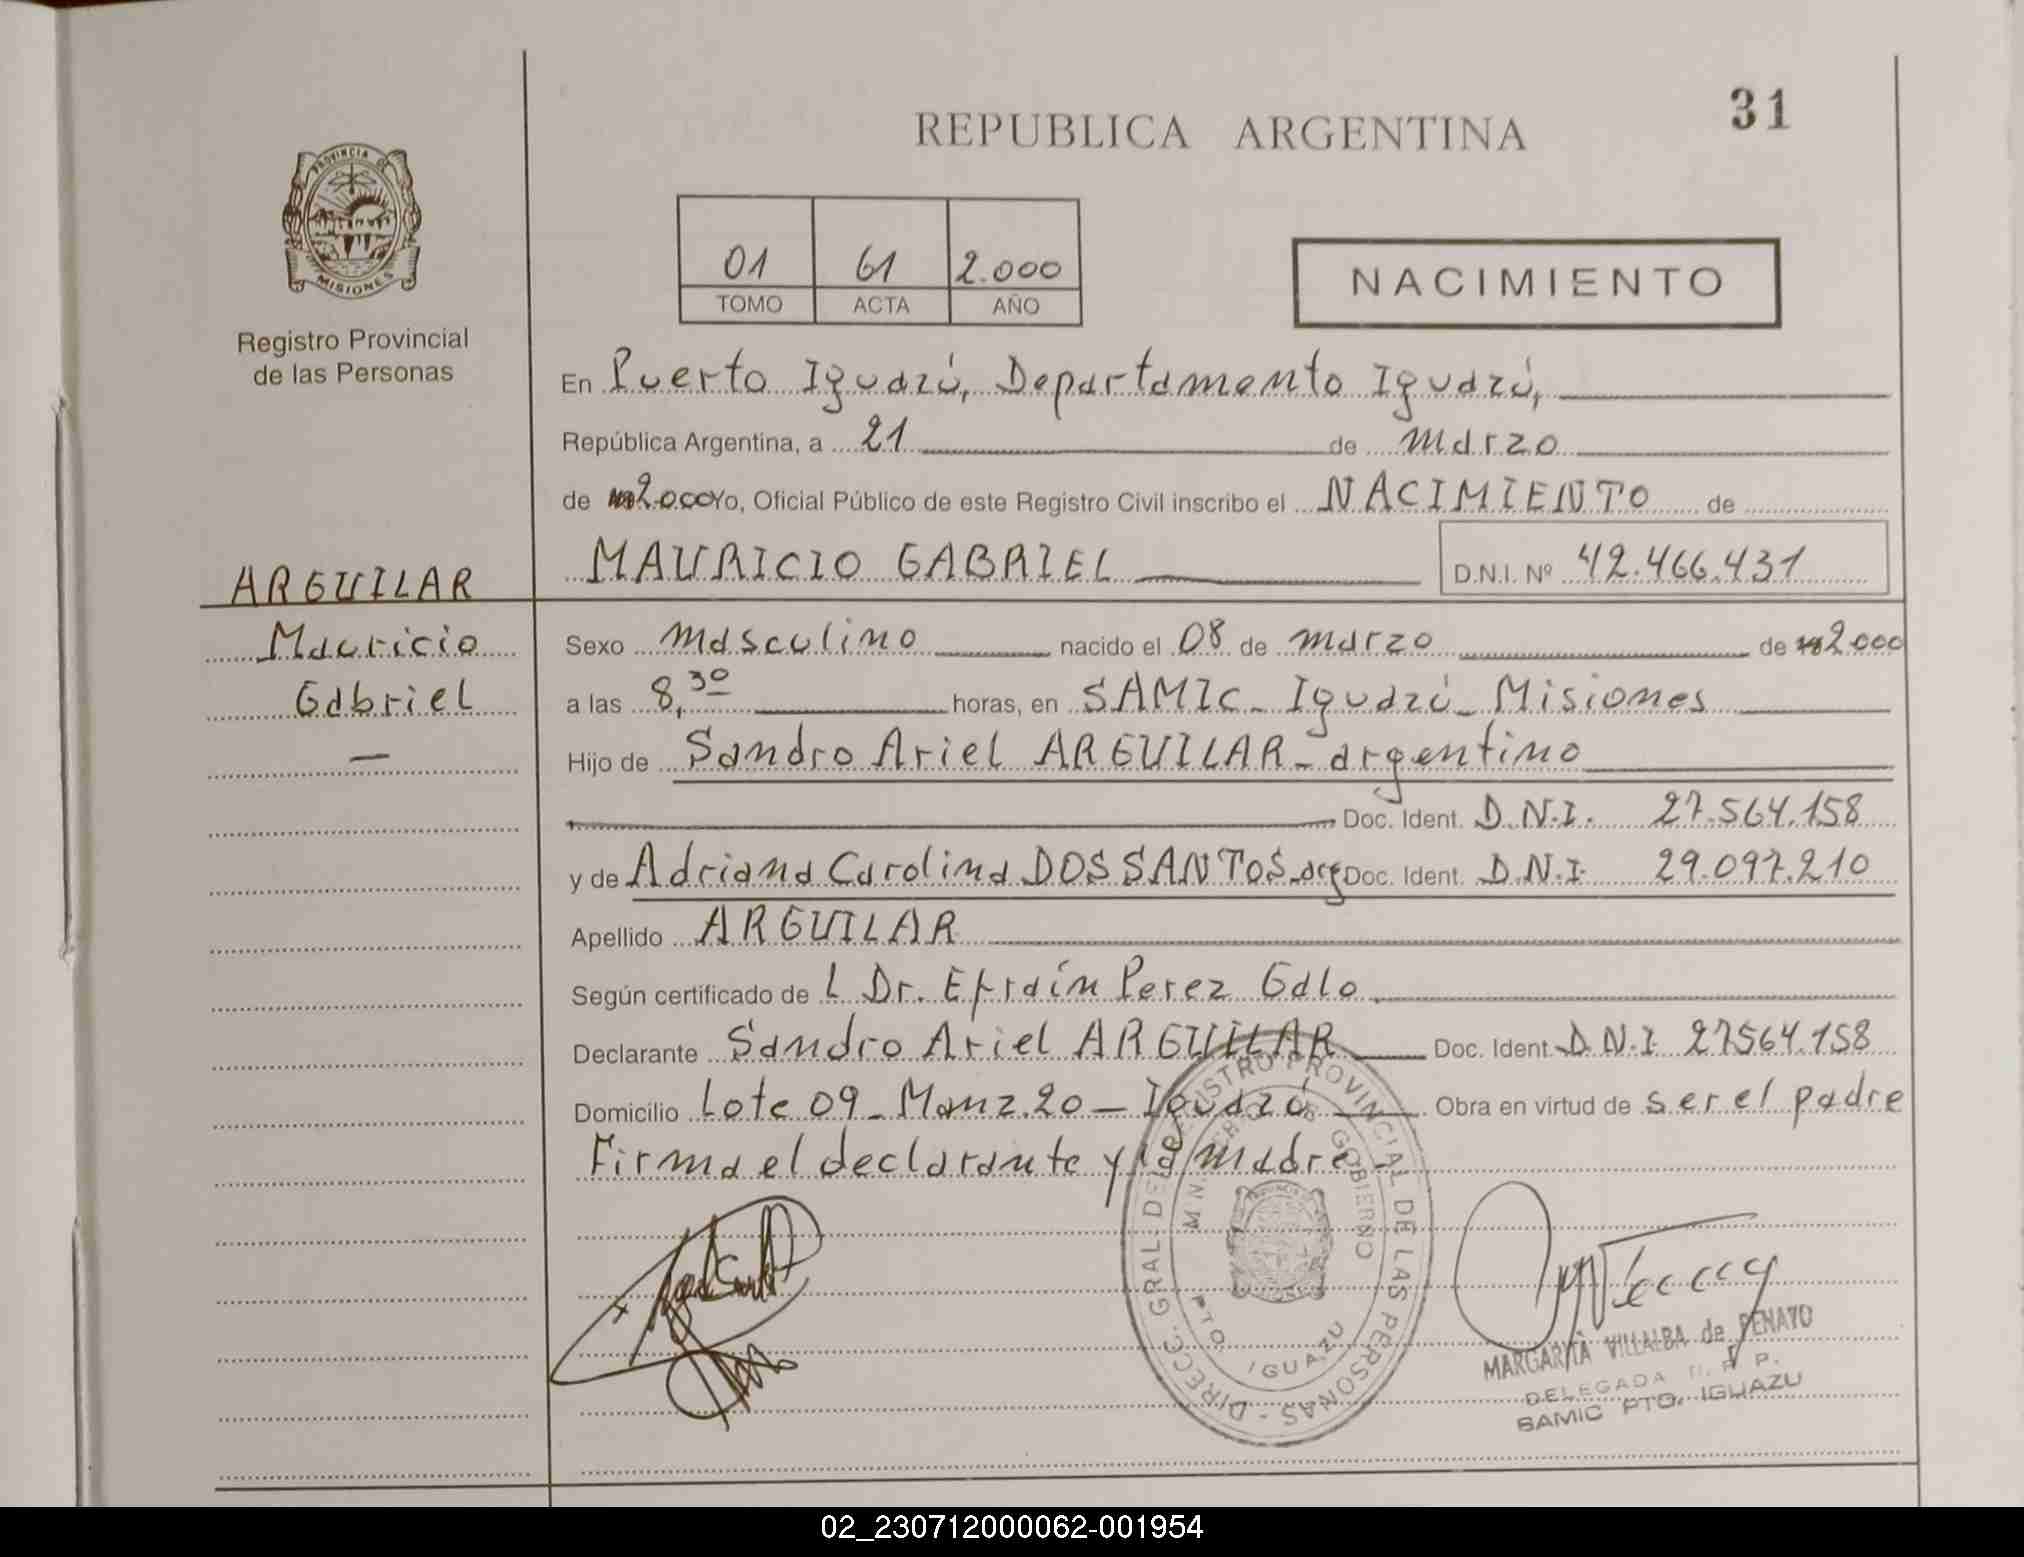 31
REPUBLICA ARGENTINA
PROVINCIA DE
MISIONES
Registro Provincial
de las Personas
01 61 2.000
TOMO ACTA AÑO
NACIMIENTO
En Puerto Iguazú, Departamento Iguazú,
República Argentina, a 21 de marzo
de 2.000 Yo, Oficial Público de este Registro Civil inscribo el NACIMIENTO de
MAURICIO GABRIEL D.N.I. Nº 42.466.431
ARGUILAR
Mauricio
Gabriel
Sexo masculino nacido el 08 de marzo de 2000
a las 8,30 horas, en SAMIC - Iguazú - Misiones
Hijo de Sandro Ariel ARGUILAR - argentino
Doc. Ident. D.N.I. 27.564.158
y de Adriana Carolina DOS SANTOS - arg Doc. Ident. D.N.I. 29.097.210
Apellido ARGUILAR
Según certificado de L Dr. Efraín Perez Galo
Declarante Sandro Ariel ARGUILAR Doc. Ident. D.N.I. 27564.158
Domicilio Lote 09 - Manz. 20 - Iguazú Obra en virtud de ser el padre
Firma el declarante y la madre
DIRECC. GRAL DEL REGISTRO PROVINCIAL DE LAS PERSONAS -
MINISTERIO DE GOBIERNO
PTO. IGUAZU
MARGARITA VILLALBA de PENAYO
DELEGADA R. P. P.
SAMIC PTO. IGUAZU
02_230712000062-001954